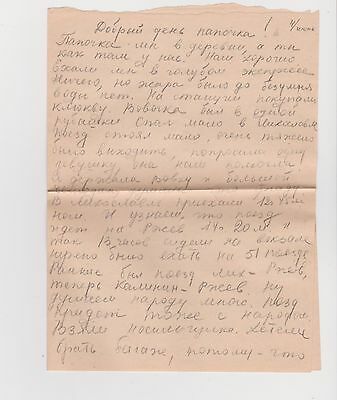 4/июля
Добрый день папочка!
Папочка мы в деревни, а ты
как там у нас. Нам хорошо
ехали мы в голубом экспрессе
Ничего, но жара было до безумия
воды нет. На станции покупали
клюкву Вовочка был в одной
рубашки Спал мало в Лихославл
поезд стоял мало, очень тяжело
было выходить попросили одну
девушку она нам помогла
и держала Вовку и большой
В Лихославле приехали 12ч 45м
ном. И узнаем, что поезд
идет на Ржев 14ч 20м и
так часов сидели на вокзале
нужно было ехать на 51 поезде
Раньше был поезд Лих-Ржев,
теперь Калинин-Ржев, Ну
думаем народу много, поезд
придет тоже с народом.
Взяли носильщика. Хотели
брать багаж, потому-что